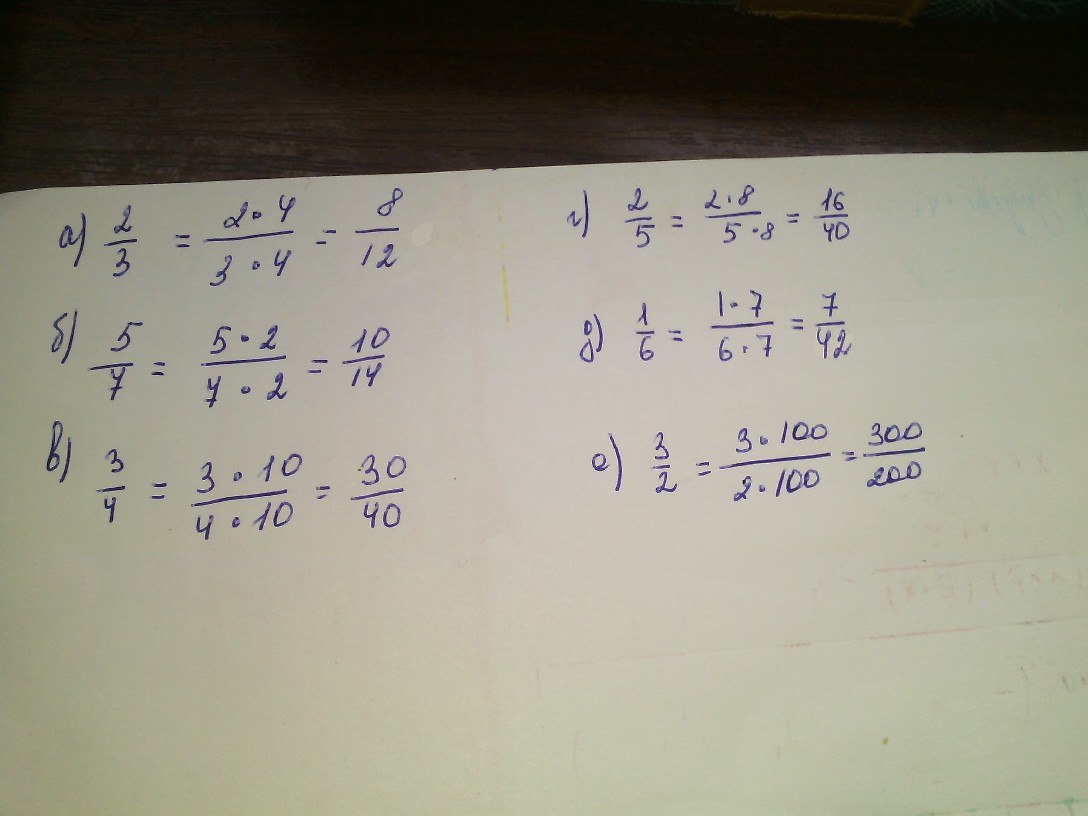 а) 2/3 = 2·4/3·4 = 8/12
б) 5/7 = 5·2/7·2 = 10/14
в) 3/4 = 3·10/4·10 = 30/40
г) 2/5 = 2·8/5·8 = 16/40
д) 1/6 = 1·7/6·7 = 7/42
е) 3/2 = 3·100/2·100 = 300/200